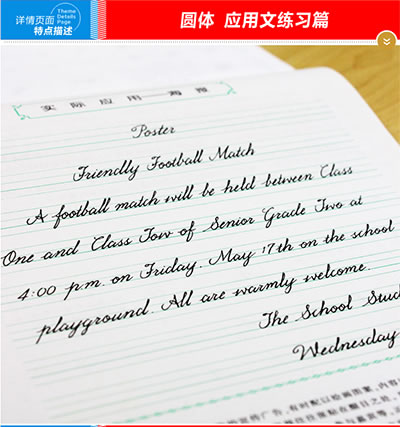 详情页面
特点描述
Theme
Details
Page
圆体 应用文练习篇
实际应用—海报
Poster
Friendly Football Match
A football match will be held between Class
One and Class Tow of Senior Grade Two at
4:00 p.m. on Friday, May 17th on the school
playground. All are warmly welcome.
The School Stud
Wednesday